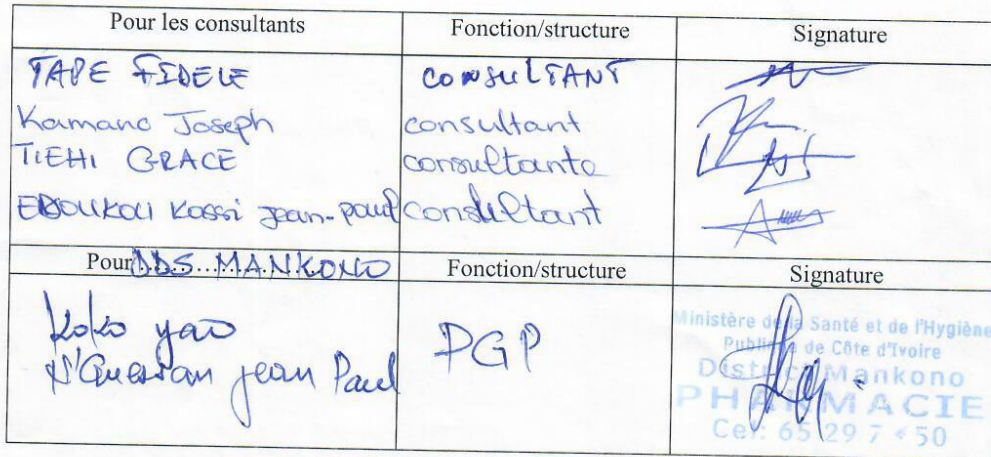 Pour les consultants Fonction/structure Signature
TAPE FIDELE CONSULTANT
Kamano Joseph consultant
TIEHI GRACE consultante
EBOUKOU Kossi jean-paul consultant
Pour DDS MANKONO Fonction/structure Signature
Koko yao
N'Guessan jean Paul
PGP
Ministère de la Santé et de l'Hygiène
Publique de Côte d'Ivoire
District Mankono
PHARMACIE
Cel: 65 29 7 50